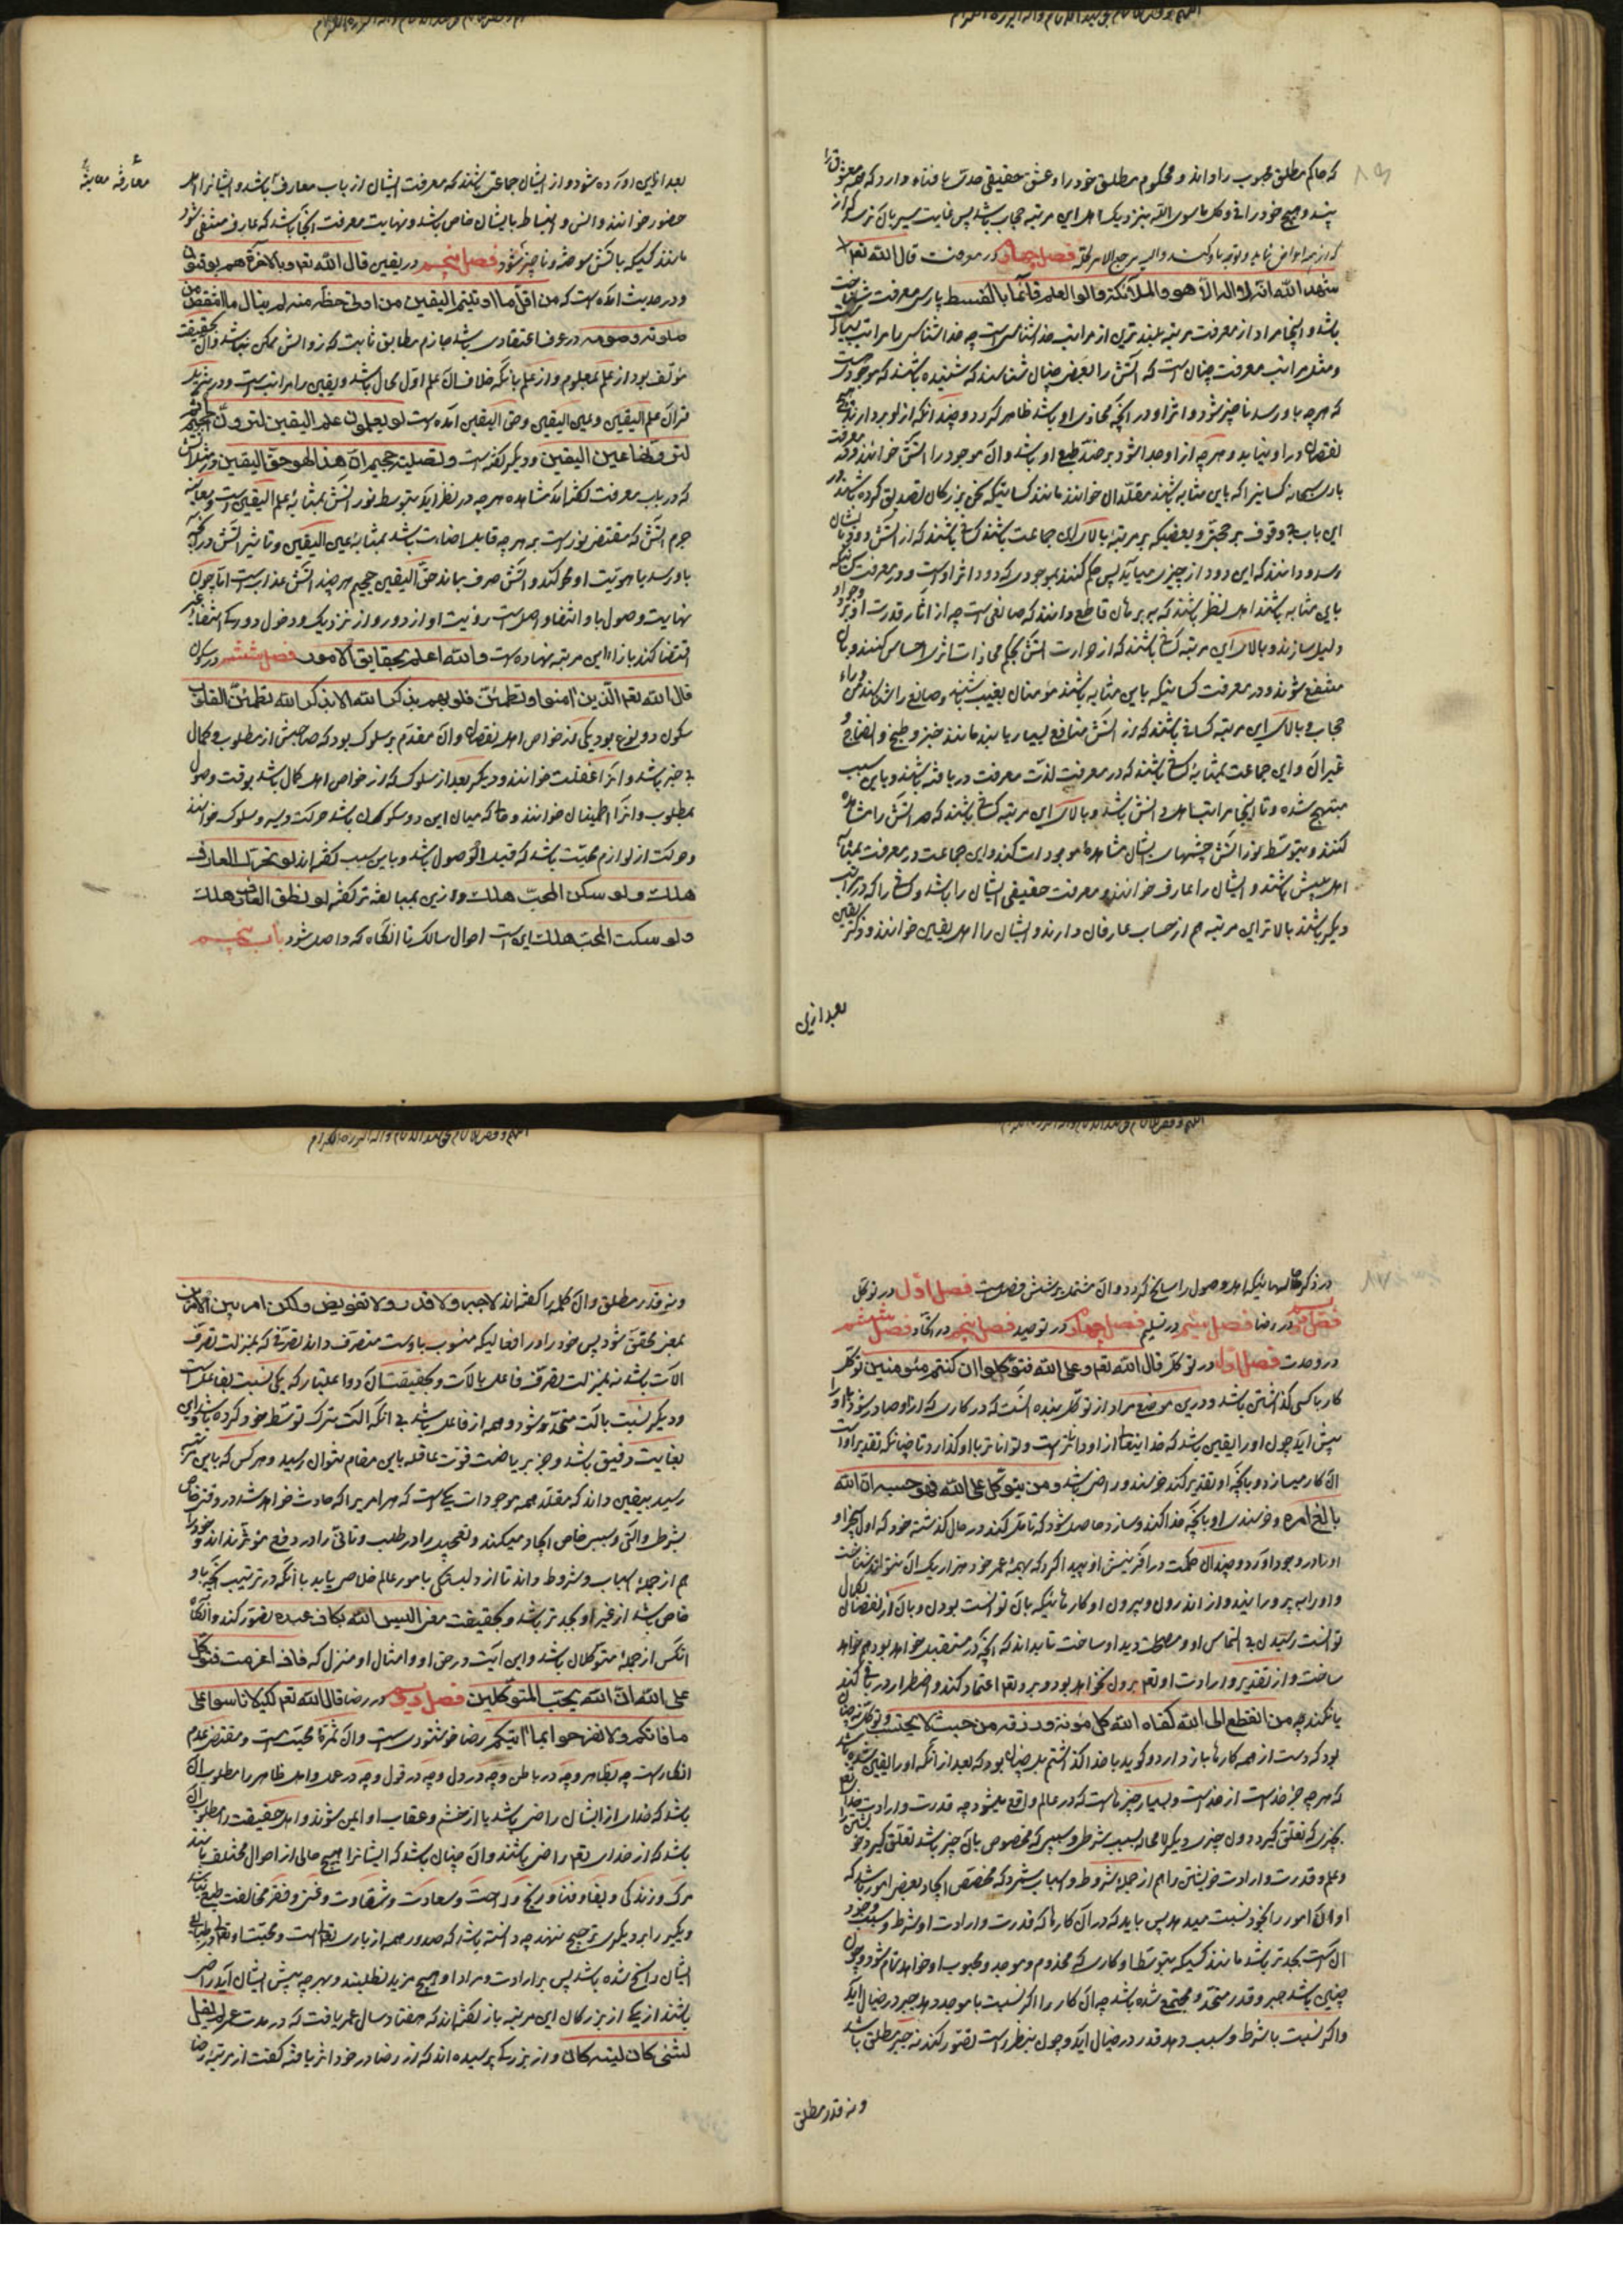 که حاکم مطلق محبوب را داند و محکوم مطلق خود را و عشق حقیقی حدی با فناء دارد که همه معشوق را
بیند و هیچ خود را
فصل چهارم در معرفت قال الله تعم
شهد الله انه لا اله الا هو والملائکة واولوا العلم قائما بالقسط پارسی معرفت شناخت
باشد و اینجا مراد از معرفت مرتبه بلندترین از مراتب خداشناسی است چه خداشناسی را مراتب بسیار است
و مثل مراتب معرفت چنان است که آتش را بعضی چنان شناسند که شنیده باشند که موجودی هست
که هرچه باو رسد ناچیز شود و اثر او در آنچه محاذی او باشد ظاهر گردد و چندانکه ازو بردارند هیچ
نقصان درو نیاید و هرچه ازو جدا شود بر ضد طبع او باشد و آن موجود را آتش خوانند و در معرفت
باری سبحانه کسانی را که باین مثابه باشند مقلدان خوانند مانند کسانیکه سخن بزرگان تصدیق کرده باشند در
این باب بی وقوف بر حجتی و بعضیکه بمرتبه بالای این جماعت باشند کسانی باشند که از آتش دود بایشان
رسد و دانند که این دود از چیزی میآید پس حکم کنند بموجودی که دود اثر اوست و در معرفت کسانیکه
باین مثابه باشند اهل نظر باشند که ببرهان قاطع دانند که صانعی هست چه از آثار قدرت او بر وجود او
دلیل سازند و بالای این مرتبه کسانی باشند که از حرارت آتش بحکم مجاورت اثری احساس کنند و بآن
منتفع شوند و در معرفت کسانیکه باین مثابه باشند مؤمنان بغیب باشند و صانع را شناسند از وراء
حجاب و بالای این مرتبه کسانی باشند که از آتش منافع بسیار یابند مانند خبز و طبخ و انضاج و
غیر آن و این جماعت بمثابه کسانی باشند که در معرفت لذت معرفت دریافته باشند و باین سبب
مبتهج شده و تا اینجا مراتب اهل دانش باشد و بالای این مرتبه کسانی باشند که آتش را مشاهده
کنند و بتوسط نور آتش چشمهای ایشان مشاهده موجودات کند و این جماعت در معرفت بمثابه
اهل بینش باشند و ایشان را عارف خوانند و معرفت حقیقی ایشان را باشد و کسانی را که در مراتب
دیگر باشند بالاتر این مرتبه هم از حساب عارفان دارند و ایشان را اهل یقین خوانند و ذکر یقین
بعد ازین
بعد ازین آورده شود و از ایشان جماعتی باشند که معرفت ایشان از باب معاینه باشد و ایشانرا اهل
حضور خوانند و انس و انبساط بایشان خاص باشد و نهایت معرفت اینجا باشد که عارف منتفی شود
مانند کسیکه بآتش سوخته و ناچیز شود فصل پنجم در یقین قال الله تعم وبالاخرة هم یوقنون
و در حدیث آمده است که من اقل ما اوتیتم الیقین ومن اوتی حظه منه لم یبال ما انتقص من
صلوته وصومه در عرف اعتقادی باشد جازم مطابق ثابت که زوالش ممکن نباشد و آن بحقیقت
مؤلف بود از علم بمعلوم و از علم بآنکه خلاف آن علم اول محال باشد و یقین را مراتب است و در تنزیل
قرآن علم الیقین و عین الیقین و حق الیقین آمده است لو تعلمون علم الیقین لترون الجحیم ثم
لترونها عین الیقین و دیگر گفته است وتصلیة جحیم ان هذا لهو حق الیقین و در مثل آتش
که در باب معرفت گفته آمد مشاهده هرچه در نظر آید بتوسط نور آتش بمثابه علم الیقین است و معاینه
جرم آتش که مفیض نور است بر هرچه قابل اضاءت باشد بمثابه عین الیقین و تاثیر آتش در آنچه
باو رسد تا هویت او محو کند و آتش صرف بماند حق الیقین جحیم هرچند آتش عذاب است اما چون
نهایت وصول باو انتفاء واصل است رؤیت او از دور و از نزدیک و دخول درو
اقتضا کند بازاء این مرتبه نهاده است والله اعلم بحقایق الامور فصل ششم در سکون
قال الله تعم الذین امنوا وتطمئن قلوبهم بذکر الله الا بذکر الله تطمئن القلوب
سکون دو نوع بود یکی از خواص اهل نقصان و آن مقدم بر سلوک بود که صاحبش از مطلوب و کمال
بی خبر باشد و آنرا غفلت خوانند و دیگر بعد از سلوک که از خواص اهل کمال باشد بوقت وصول
بمطلوب و آنرا اطمینان خوانند و حالی که میان این دو سکون باشد حرکت و سیر و سلوک خوانند
و حرکت از لوازم محبت باشد که قبل الوصول باشد و باین سبب گفته اند لو تحرک العارف
هلک ولو سکن المحب هلک و ازین بمبالغه تر گفته لو نطق العارف هلک
ولو سکت المحب هلک این است احوال سالک تا آنگاه که واصل شود باب پنجم
معارفه معاینه
در ذکر حالهائیکه اهل وصول را سانح گردد و آن مشتمل بر شش فصل است فصل اول در توکل
فصل دوم در رضا فصل سیم در تسلیم فصل چهارم در توحید فصل پنجم در اتحاد فصل ششم
در وحدت فصل اول در توکل قال الله تعم وعلی الله فتوکلوا ان کنتم مؤمنین توکل
کار با کسی گذاشتن باشد و درین موضع مراد از توکل بنده آنست که در کاری که ازو صادر شود یا او را
پیش آید چون او را یقین باشد که خدایتعالی ازو داناتر است و تواناتر با او گذارد تا چنانکه تقدیر اوست
آن کار میسازد و بآنچه او تقدیر کند خرسند و راضی باشد ومن یتوکل علی الله فهو حسبه ان الله
بالغ امره و خرسندی او بآنچه خدا کند و سازد حاصل شود که تامل کند در حال گذشته خود که اول بی خبر او
او را در وجود آورد و چندان حکمت در آفرینش او پیدا کرد که بهمه عمر خود هزار یک آن نتواند شناخت
و او را بپرورانید و از اندرون و بیرون او کارهائیکه بآن توانست بودن و بآن از نقصان بکمال
توانست رسیدن بی التماس او و مصلحت دید او ساخت تا بداند که آنچه در مستقبل خواهد بود هم خواهد
ساخت و از تقدیر و ارادت او تعم برون نخواهد بود و برو تعم اعتماد کند و اضطرار در باقی کند
یا نکند چه من انقطع الی الله کفاه الله کل مؤنة ورزقه من حیث لا یحتسب و توکل نه چنان
بود که دست از همه کارها باز دارد و گوید با خدا گذاشتم بل چنان بود که بعد از آنکه او را یقین شده باشد
که هرچه جز خداست از خداست و بسیار چیزهاست که در عالم واقع میشود چه قدرت و ارادت خدای تعم
بچیزی که تعلق گیرد دون چیزی دیگر لا محاله بسبب شرطی و سببی که مخصوص بآن چیز باشد تعلق گیرد خویشتن را
و علم و قدرت و ارادت خویشتن را هم از جمله شروط و اسباب شمرد که مخصص ایجاد بعضی امور باشد که
او آن امور را بخود نسبت میدهد پس باید که در آن کارها که قدرت و ارادت او شرط و سبب وجود
آن است بجدتر باشد مانند کسیکه بتوسط او کاری که مخدوم و موجد و محبوب او خواهد تمام شود و چون
چنین باشد جبر و قدر متحد و مجتمع شده باشد چه آن کار را اگر نسبت با موجد دهد جبر در خیال آید
و اگر نسبت با شرط و سبب دهد قدر در خیال آید و چون بنظر راست تصور کند نه جبر مطلق باشد
و نه قدر مطلق
و نه قدر مطلق و آن کلمه را که گفته اند لا جبر ولا قدر ولا تفویض ولکن امر بین الامرین
بمعنی محقق شود پس خود را در افعالیکه منسوب باوست متصرف داند تصرفی که بمنزلت تصرف
آلات باشد نه بمنزلت تصرف فاعل بآلات و بحقیقت آن دو اعتبار که یکی نسبت بفاعل است
و دیگر نسبت بآلت متحد شود و همه از فاعل باشد بی آنکه آلت ترک توسط خود کرده باشد و این
بغایت دقیق باشد و جز بریاضت قوت عاقله باین مقام نتوان رسید و هر کس که باین مرتبه
رسید بیقین داند که مقدر همه موجودات یکی است که هر امریرا که حادث خواهد شد در وقتی خاص
بشرطی و آلتی و سببی خاص ایجاد میکند و تعجیل را در طلب و تأنی را در دفع مؤثر نداند و خود را
هم از جمله اسباب و شروط داند تا از دلبستگی بامور عالم خلاص یابد با آنکه در ترتیب آنچه باو
خاص باشد از غیر او بجدتر باشد و بحقیقت معنی الیس الله بکاف عبده تصور کند و آنگاه
آنکس از جمله متوکلان باشد و این آیت در حق او و امثال او منزل که فاذا عزمت فتوکل
علی الله ان الله یحب المتوکلین فصل دویم در رضا قال الله تعم لکیلا تاسوا علی
ما فاتکم ولا تفرحوا بما اتیکم رضا خوشنودی است و آن ثمره محبت است و مقتضی عدم
انکار است چه بظاهر و چه در باطن و چه در دل و چه در قول و چه در عمل و اهل ظاهر را مطلوب آن
باشد که خدا از ایشان راضی باشد تا از خشم و عقاب او ایمن شوند و اهل حقیقت را مطلوب آن
باشد که از خدای تعم راضی باشند و آن چنان باشد که ایشانرا هیچ حالی از احوال مختلف مانند
مرگ و زندگی و بقا و فنا و رنج و راحت و سعادت و شقاوت و غنی و فقر مخالف طبع نباشد
و یکی را بر دیگری ترجیح ننهند چه دانسته باشند که صدور همه از باری تعالی است و محبت او تعالی در طبایع
ایشان راسخ شده باشد پس بر ارادت و مراد او هیچ مزید نطلبند و بهرچه پیش ایشان آید راضی
باشند از یکی از بزرگان این مرتبه باز گفته اند که هفتاد سال عمر یافت که در مدت عمر لم یقل
لشیء کان لیته لم یکن و از بزرگی پرسیده اند که از رضا در خود اثر یافته گفت از مرتبه رضا